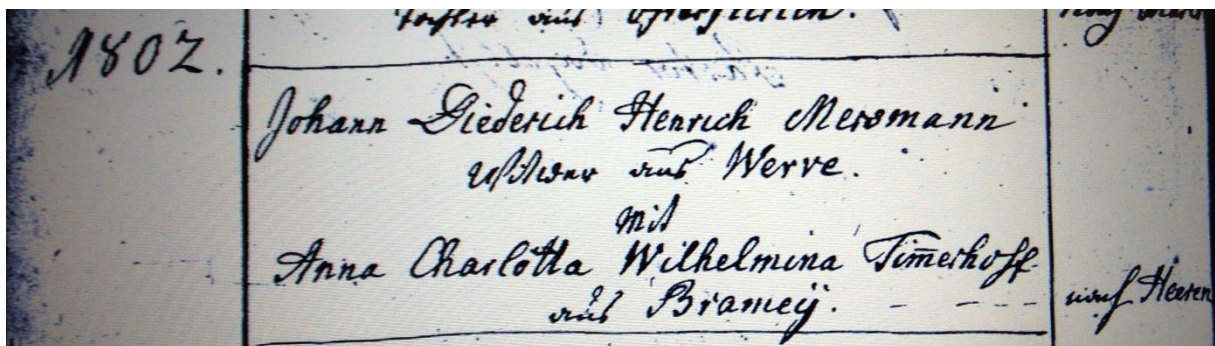 Tochter aus
1802.
Johann Diederich Henrich Mersmann
Wittwer aus Werve.
mit
Anna Charlotta Wilhelmina Tim̅erhoff
aus Brameÿ.
nach Heeren